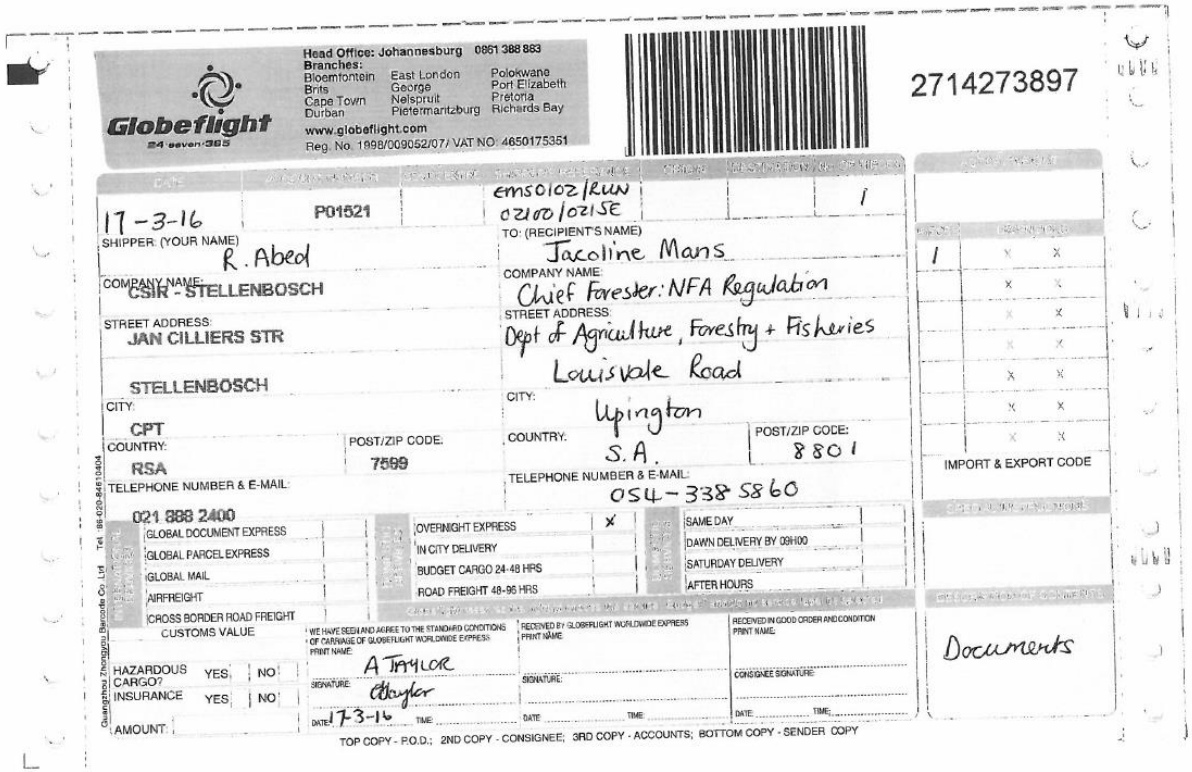 Globeflight
24·seven·365
Head Office: Johannesburg 0861 388 883
Branches:
Bloemfontein East London Polokwane
Brits George Port Elizabeth
Cape Town Nelspruit Pretoria
Durban Pietermantzburg Richards Bay
www.globeflight.com
Reg. No. 1998/009052/07/ VAT NO: 4650175351
2714273897
DATE
17-3-16
P01521
EMS0102/RUN
02100/0215E
1
SHIPPER: (YOUR NAME)
R. Abed
COMPANY NAME:
CSIR - STELLENBOSCH
STREET ADDRESS:
JAN CILLIERS STR
STELLENBOSCH
CITY:
CPT
COUNTRY:
RSA
POST/ZIP CODE:
7599
TELEPHONE NUMBER & E-MAIL:
021 888 2400
TO: (RECIPIENT'S NAME)
Jacoline Mans
COMPANY NAME:
Chief Forester: NFA Regulation
STREET ADDRESS:
Dept of Agriculture, Forestry + Fisheries
Louisvale Road
CITY:
Upington
COUNTRY:
S.A.
POST/ZIP CODE:
8801
TELEPHONE NUMBER & E-MAIL:
054-338 5860
1 X X
X X
X X
X X
X X
X X
X X
IMPORT & EXPORT CODE
GLOBAL DOCUMENT EXPRESS
GLOBAL PARCEL EXPRESS
GLOBAL MAIL
AIRFREIGHT
CROSS BORDER ROAD FREIGHT
OVERNIGHT EXPRESS X
IN CITY DELIVERY
BUDGET CARGO 24-48 HRS
ROAD FREIGHT 48-96 HRS
SAME DAY
DAWN DELIVERY BY 09H00
SATURDAY DELIVERY
AFTER HOURS
CUSTOMS VALUE
HAZARDOUS CARGO? YES NO
INSURANCE YES NO
AMOUNT
WE HAVE SEEN AND AGREE TO THE STANDARD CONDITIONS
OF CARRIAGE OF GLOBEFLIGHT WORLDWIDE EXPRESS
PRINT NAME:
A TAYLOR
SIGNATURE: ATaylor
DATE 17-3-16 TIME:
RECEIVED BY GLOBEFLIGHT WORLDWIDE EXPRESS
PRINT NAME:
SIGNATURE:
DATE: TIME:
RECEIVED IN GOOD ORDER AND CONDITION
PRINT NAME:
CONSIGNEE SIGNATURE:
DATE: TIME:
Documents
TOP COPY - P.O.D.; 2ND COPY - CONSIGNEE; 3RD COPY - ACCOUNTS; BOTTOM COPY - SENDER COPY
Guangzhou Zhongyou Barcode Co.,Ltd Tel:86-020-84610404